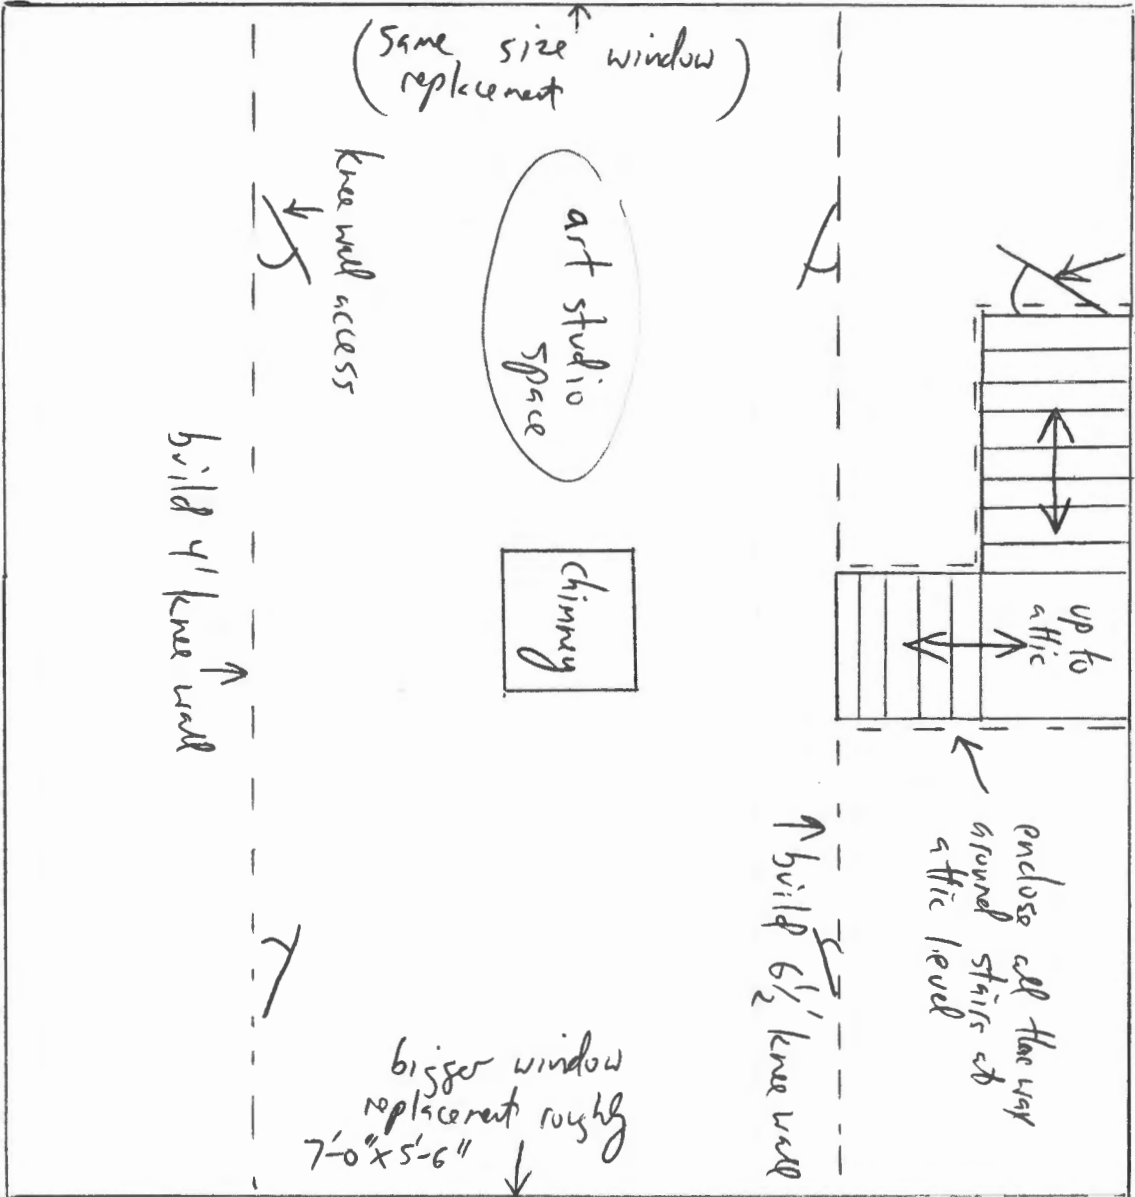 (same size window
replacement)
knee wall access
art studio
space
build 4' knee wall
chimney
up to
attic
enclose all the way
around stairs at
attic level
build 6 1/2' knee wall
bigger window
replacement roughly
7'-0" x 5'-6"